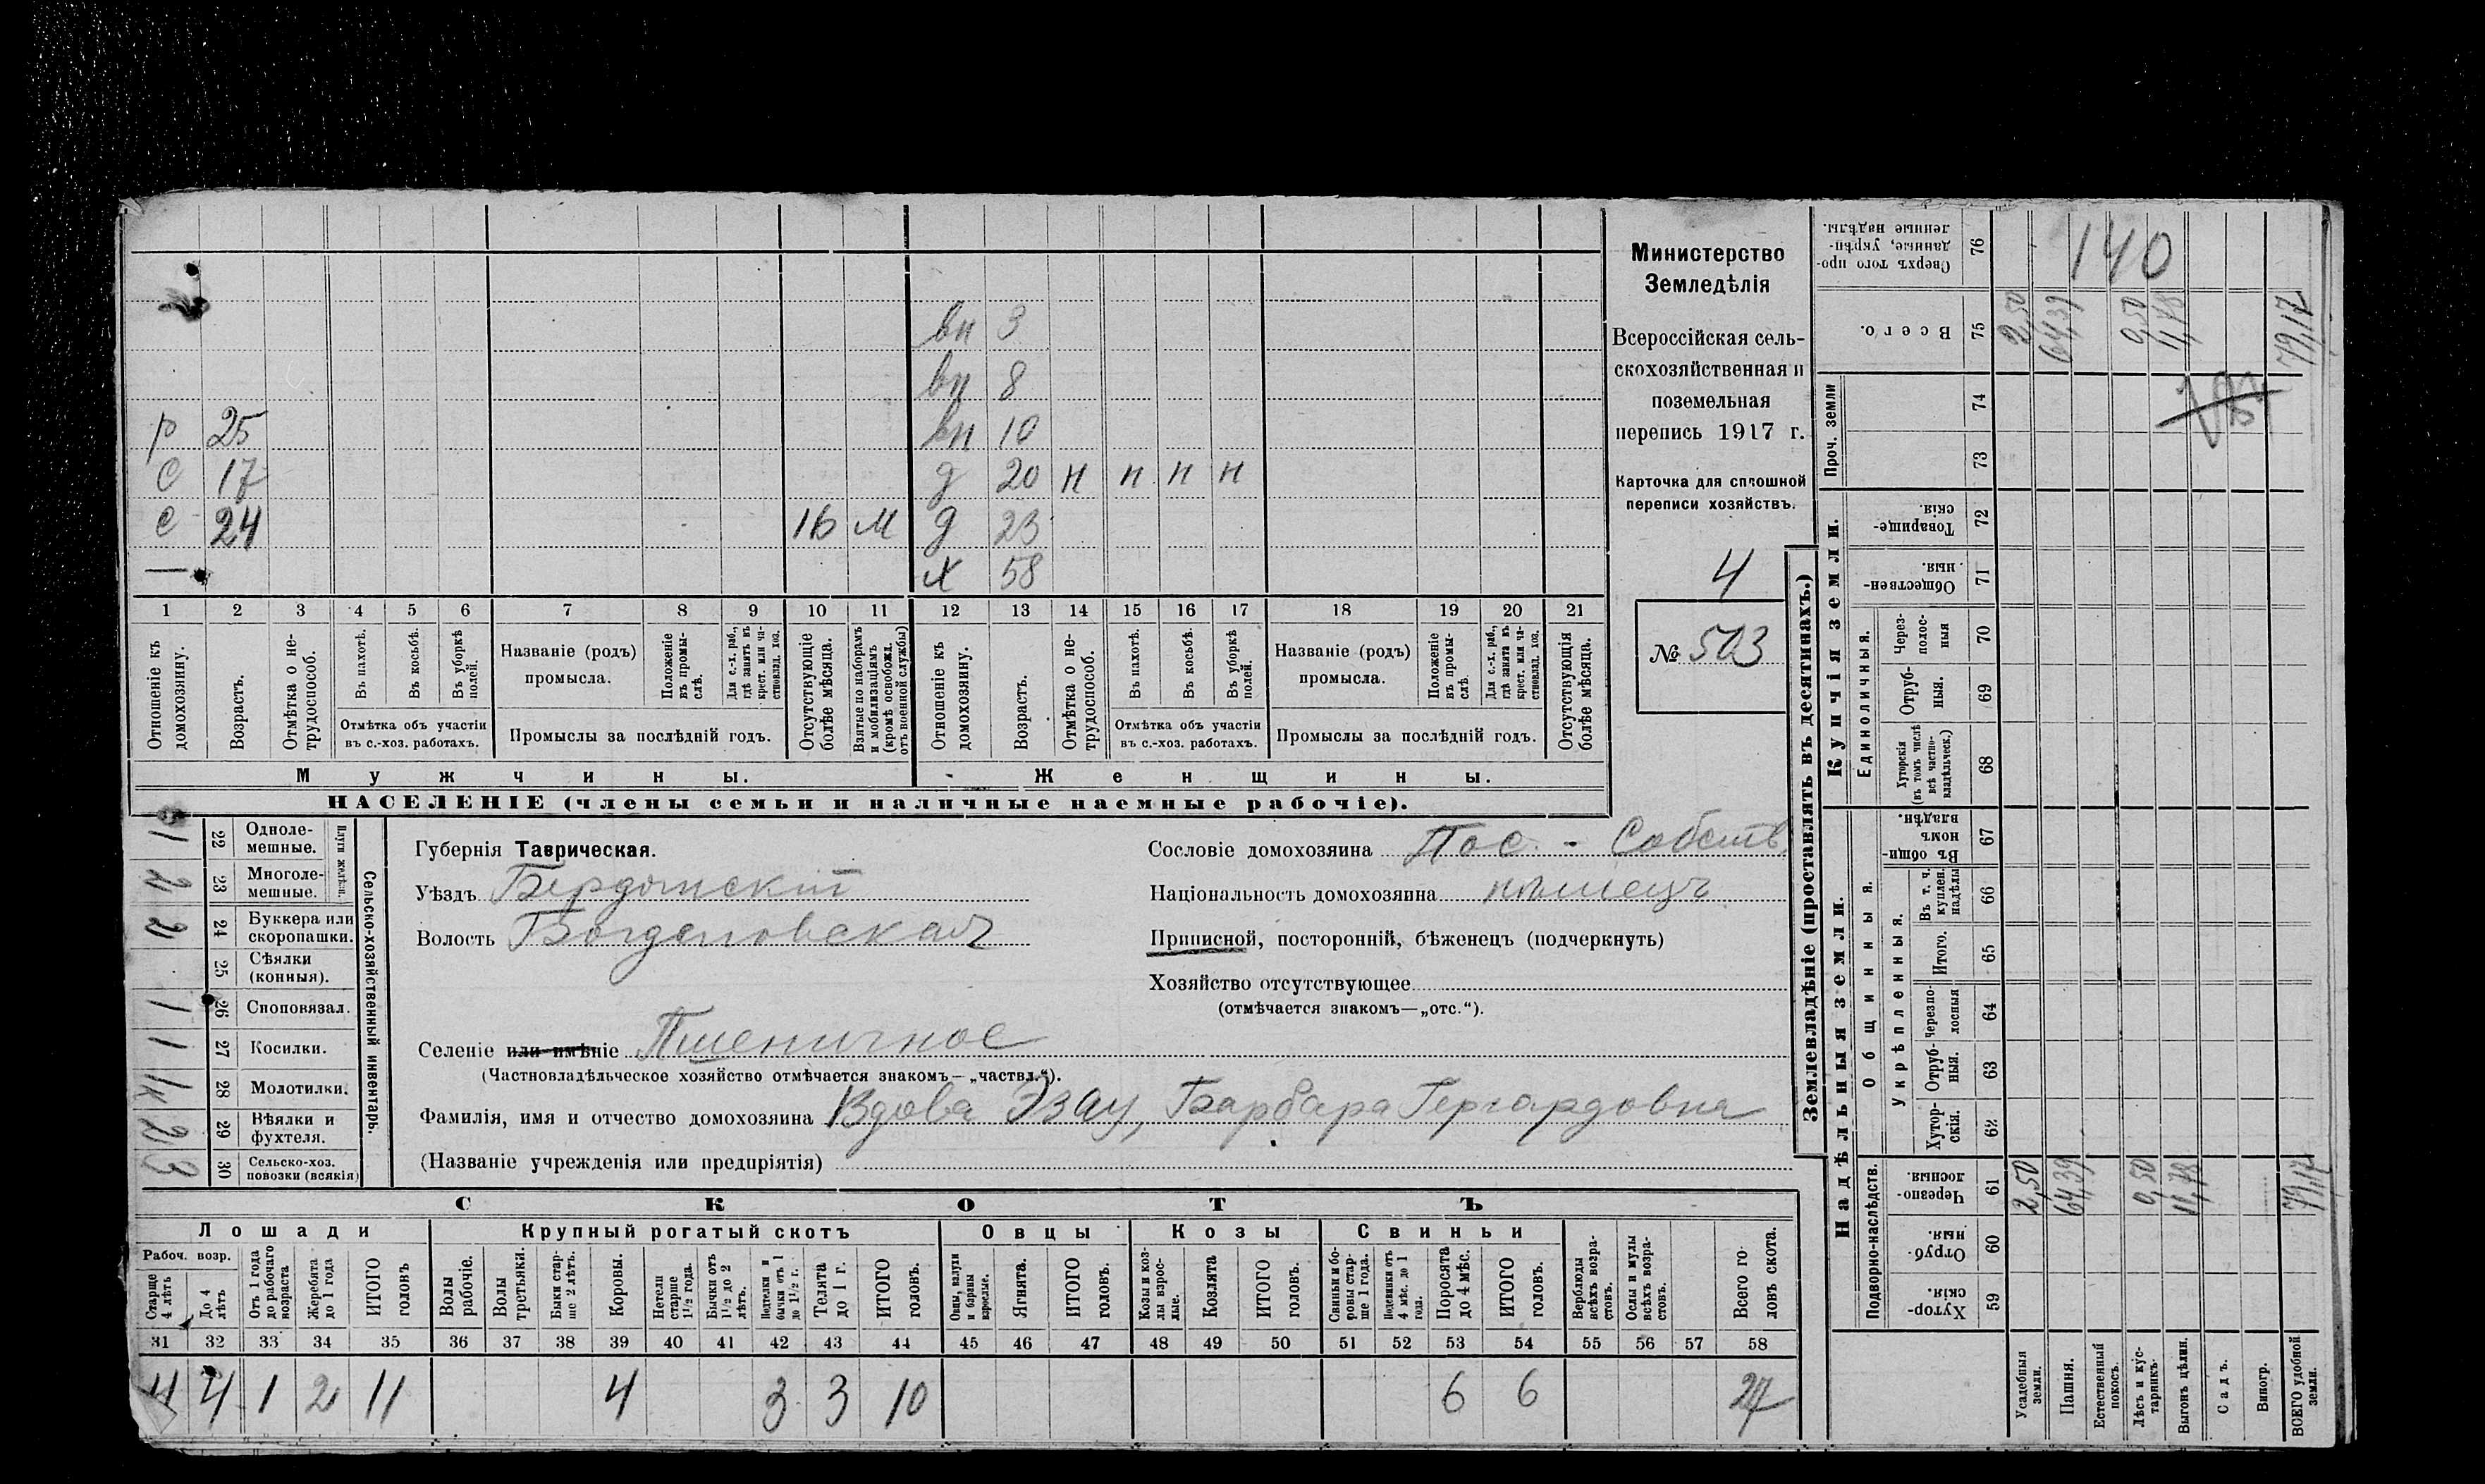 вн 3
вн 8
р 25 вн 10
С 17 д 20 н н н н
с 24 1Б М д 23
— х 58
1 2 3 4 5 6 7 8 9 10 11 12 13 14 15 16 17 18 19 20 21
Отношеніе къ домохозяину.
Возрастъ.
Отмѣтка о нетрудоспособ.
Въ пахотѣ.
Въ косьбѣ.
Въ уборкѣ полей.
Отмѣтка объ участіи
въ с.-хоз. работахъ.
Названіе (родъ)
промысла.
Положеніе въ промыслѣ.
Для с.-х. раб., гдѣ занятъ въ крест. или частновлад. хоз.
Промыслы за послѣдній годъ.
Отсутствующіе болѣе мѣсяца.
Взятые по наборамъ и мобилизаціямъ (кромѣ освобожд. отъ военной службы)
Отношеніе къ домохозяину.
Возрастъ.
Отмѣтка о нетрудоспособ.
Въ пахотѣ.
Въ косьбѣ.
Въ уборкѣ полей.
Отмѣтка объ участіи
въ с.-хоз. работахъ.
Названіе (родъ)
промысла.
Положеніе въ промыслѣ.
Для с.-х. раб., гдѣ занята въ крест. или частновлад. хоз.
Промыслы за послѣдній годъ.
Отсутствующія болѣе мѣсяца.
Мужчины. Женщины.
НАСЕЛЕНІЕ (члены семьи и наличные наемные рабочіе).
Министерство
Земледѣлія
Всероссійская сель-
скохозяйственная и
поземельная
перепись 1917 г.
Карточка для сплошной
переписи хозяйствъ.
4
№ 503
Сельско-хозяйственный инвентарь.
Плуги желѣзн.
1 22 Одноле-
мешные.
2 23 Многоле-
мешные.
2 24 Буккера или
скоропашки.
25 Сѣялки
(конныя).
1 26 Сноповязал.
1 27 Косилки.
1к 28 Молотилки.
2 29 Вѣялки и
фухтеля.
3 30 Сельско-хоз.
повозки (всякія)
Губернія Таврическая.
Уѣздъ Бердянскій
Волость Богдановская
Селеніе или имѣніе Пшеничное
(Частновладѣльческое хозяйство отмѣчается знакомъ—„частвл.“).
Фамилія, имя и отчество домохозяина Вдова Эзау, Барбара Гергардовна
(Названіе учрежденія или предпріятія)
Сословіе домохозяина Пос. - Собств.
Національность домохозяина нѣмецъ
Приписной, посторонній, бѣженецъ (подчеркнуть)
Хозяйство отсутствующее
(отмѣчается знакомъ—„отс.“).
СКОТЪ
Лошади Крупный рогатый скотъ Овцы Козы Свиньи
Рабоч. возр.
Старше 4 лѣтъ
До 4 лѣтъ
Отъ 1 года до рабочаго возраста
Жеребята до 1 года
ИТОГО головъ
Волы рабочіе.
Волы третьяки.
Быки старше 2 лѣтъ.
Коровы.
Нетели старше 1½ года.
Бычки отъ 1½ до 2 лѣтъ.
Подтелки и бычки отъ 1 до 1½ г.
Телята до 1 г.
ИТОГО головъ.
Овцы, валухи и бараны взрослые.
Ягнята.
ИТОГО головъ.
Козы и козлы взрослые.
Козлята
ИТОГО головъ.
Свиньи и боровы старше 1 года.
Подсвинки отъ 4 мѣс. до 1 года.
Поросята до 4 мѣс.
ИТОГО головъ.
Верблюды всѣхъ возрастовъ.
Ослы и мулы всѣхъ возрастовъ.
Всего головъ скота.
31 32 33 34 35 36 37 38 39 40 41 42 43 44 45 46 47 48 49 50 51 52 53 54 55 56 57 58
4 4 1 2 11 4 3 3 10 6 6 27
Землевладѣніе (проставлять въ десятинахъ.)
Сверхъ того проданные, укрѣпленные надѣлы. 76 140
Всего. 75 2,50 64,39 0,50 11,78 79,17
Проч. земли
74
73
Купчія земли.
Товарищескія. 72
Общественныя. 71
Единоличныя.
Черезполосныя 70
Отрубныя. 69
Хуторскія (въ томъ числѣ всѣ частновладѣльческ.) 68
Надѣльныя земли.
Общинныя.
Въ общинномъ владѣн. 67
Укрѣпленныя.
Въ т. ч. куплен. надѣлы 66
Итого. 65
Черезполосныя 64
Отрубныя. 63
Хуторскія. 62
Подворно-наслѣдств.
Черезполосныя. 61 2,50 64,39 0,50 11,78 79,17
Отрубныя. 60
Хуторскія. 59
Усадебныя земли.
Пашня.
Естественный покосъ.
Лѣсъ и кустарникъ.
Выгонъ цѣлин.
Садъ.
Виногр.
ВСЕГО удобной земли.